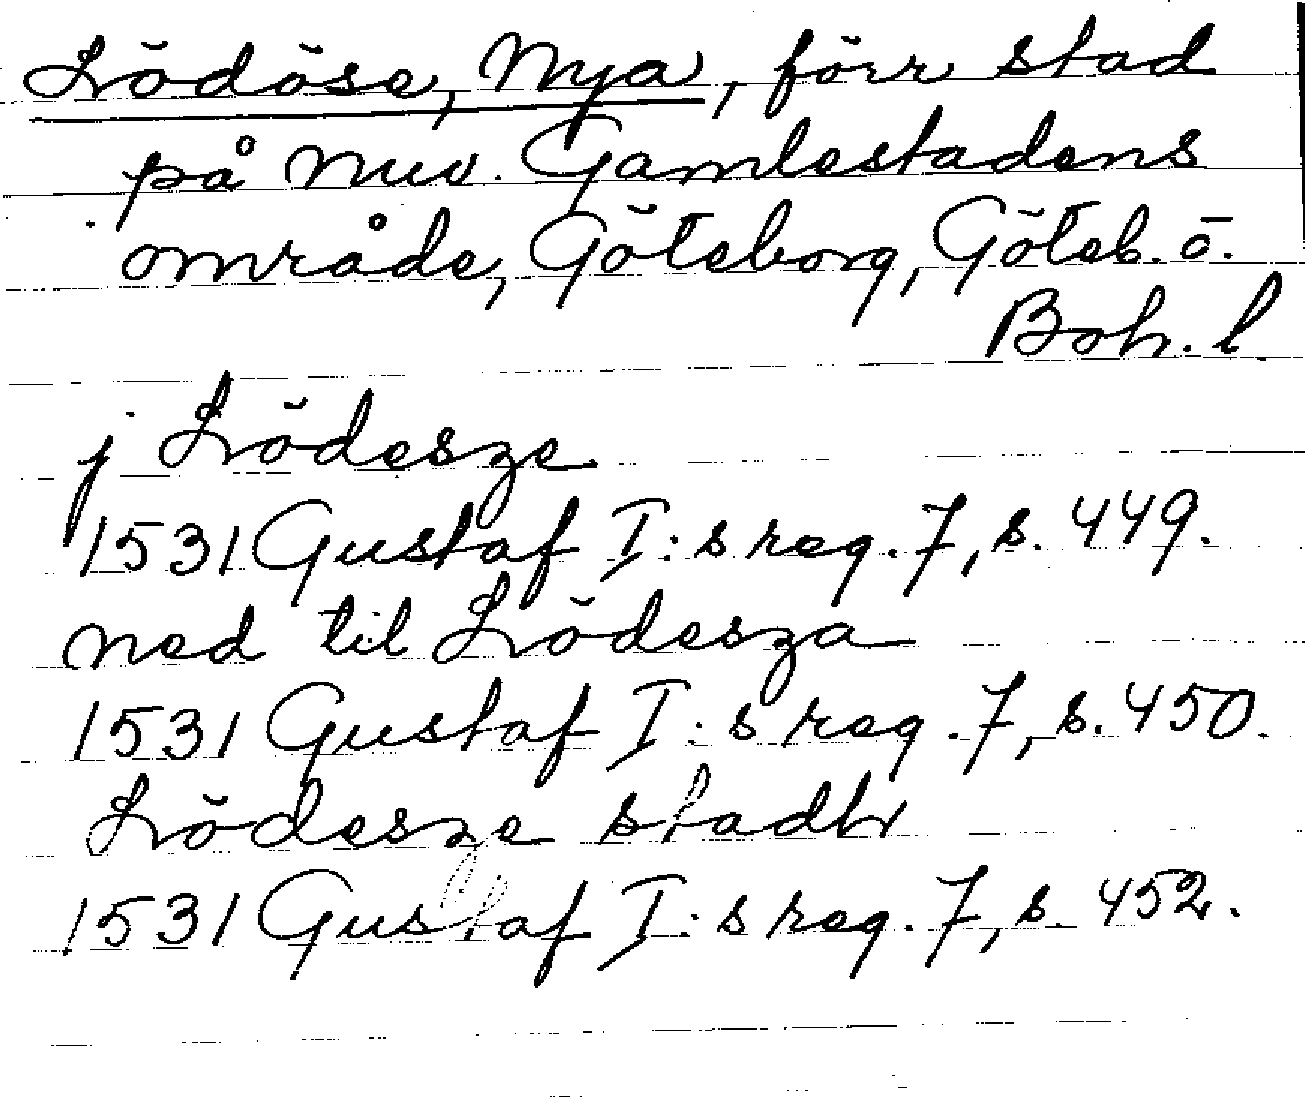 Lödöse, Nya, förr stad
på nuv. Gamlestadens
område, Göteborg, Göteb. o.
Boh. l.
j Lödesze
1531 Gustaf I:s reg. 7, s. 449.
ned til Lödesza
1531 Gustaf I:s reg. 7, s. 450.
Lödesze stadh
1531 Gustaf I:s reg. 7, s. 452.